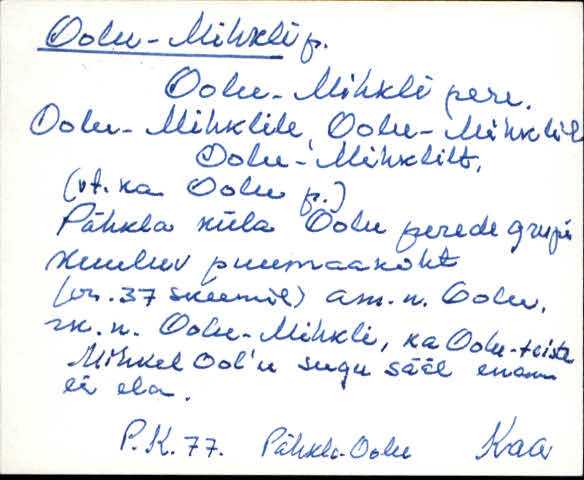 Oolu-Mihkli p.
Oolu-Mihkli pere.
Oolu-Mihklile, Oolu-Mihklil
Oolu-Mihklilt.
(vt. ka Oolu p.)
Pähkla küla Oolu perede gruppi
kuuluv puumaakoht
(nr. 37 skeemil) am. n. Oolu,
rk. n. Oolu-Mihkli, ka Oolu-teista
Mihkel Ool'u sugu sääl enam
ei ela.
P.K. 77. Pähkla-Oolu Kaa